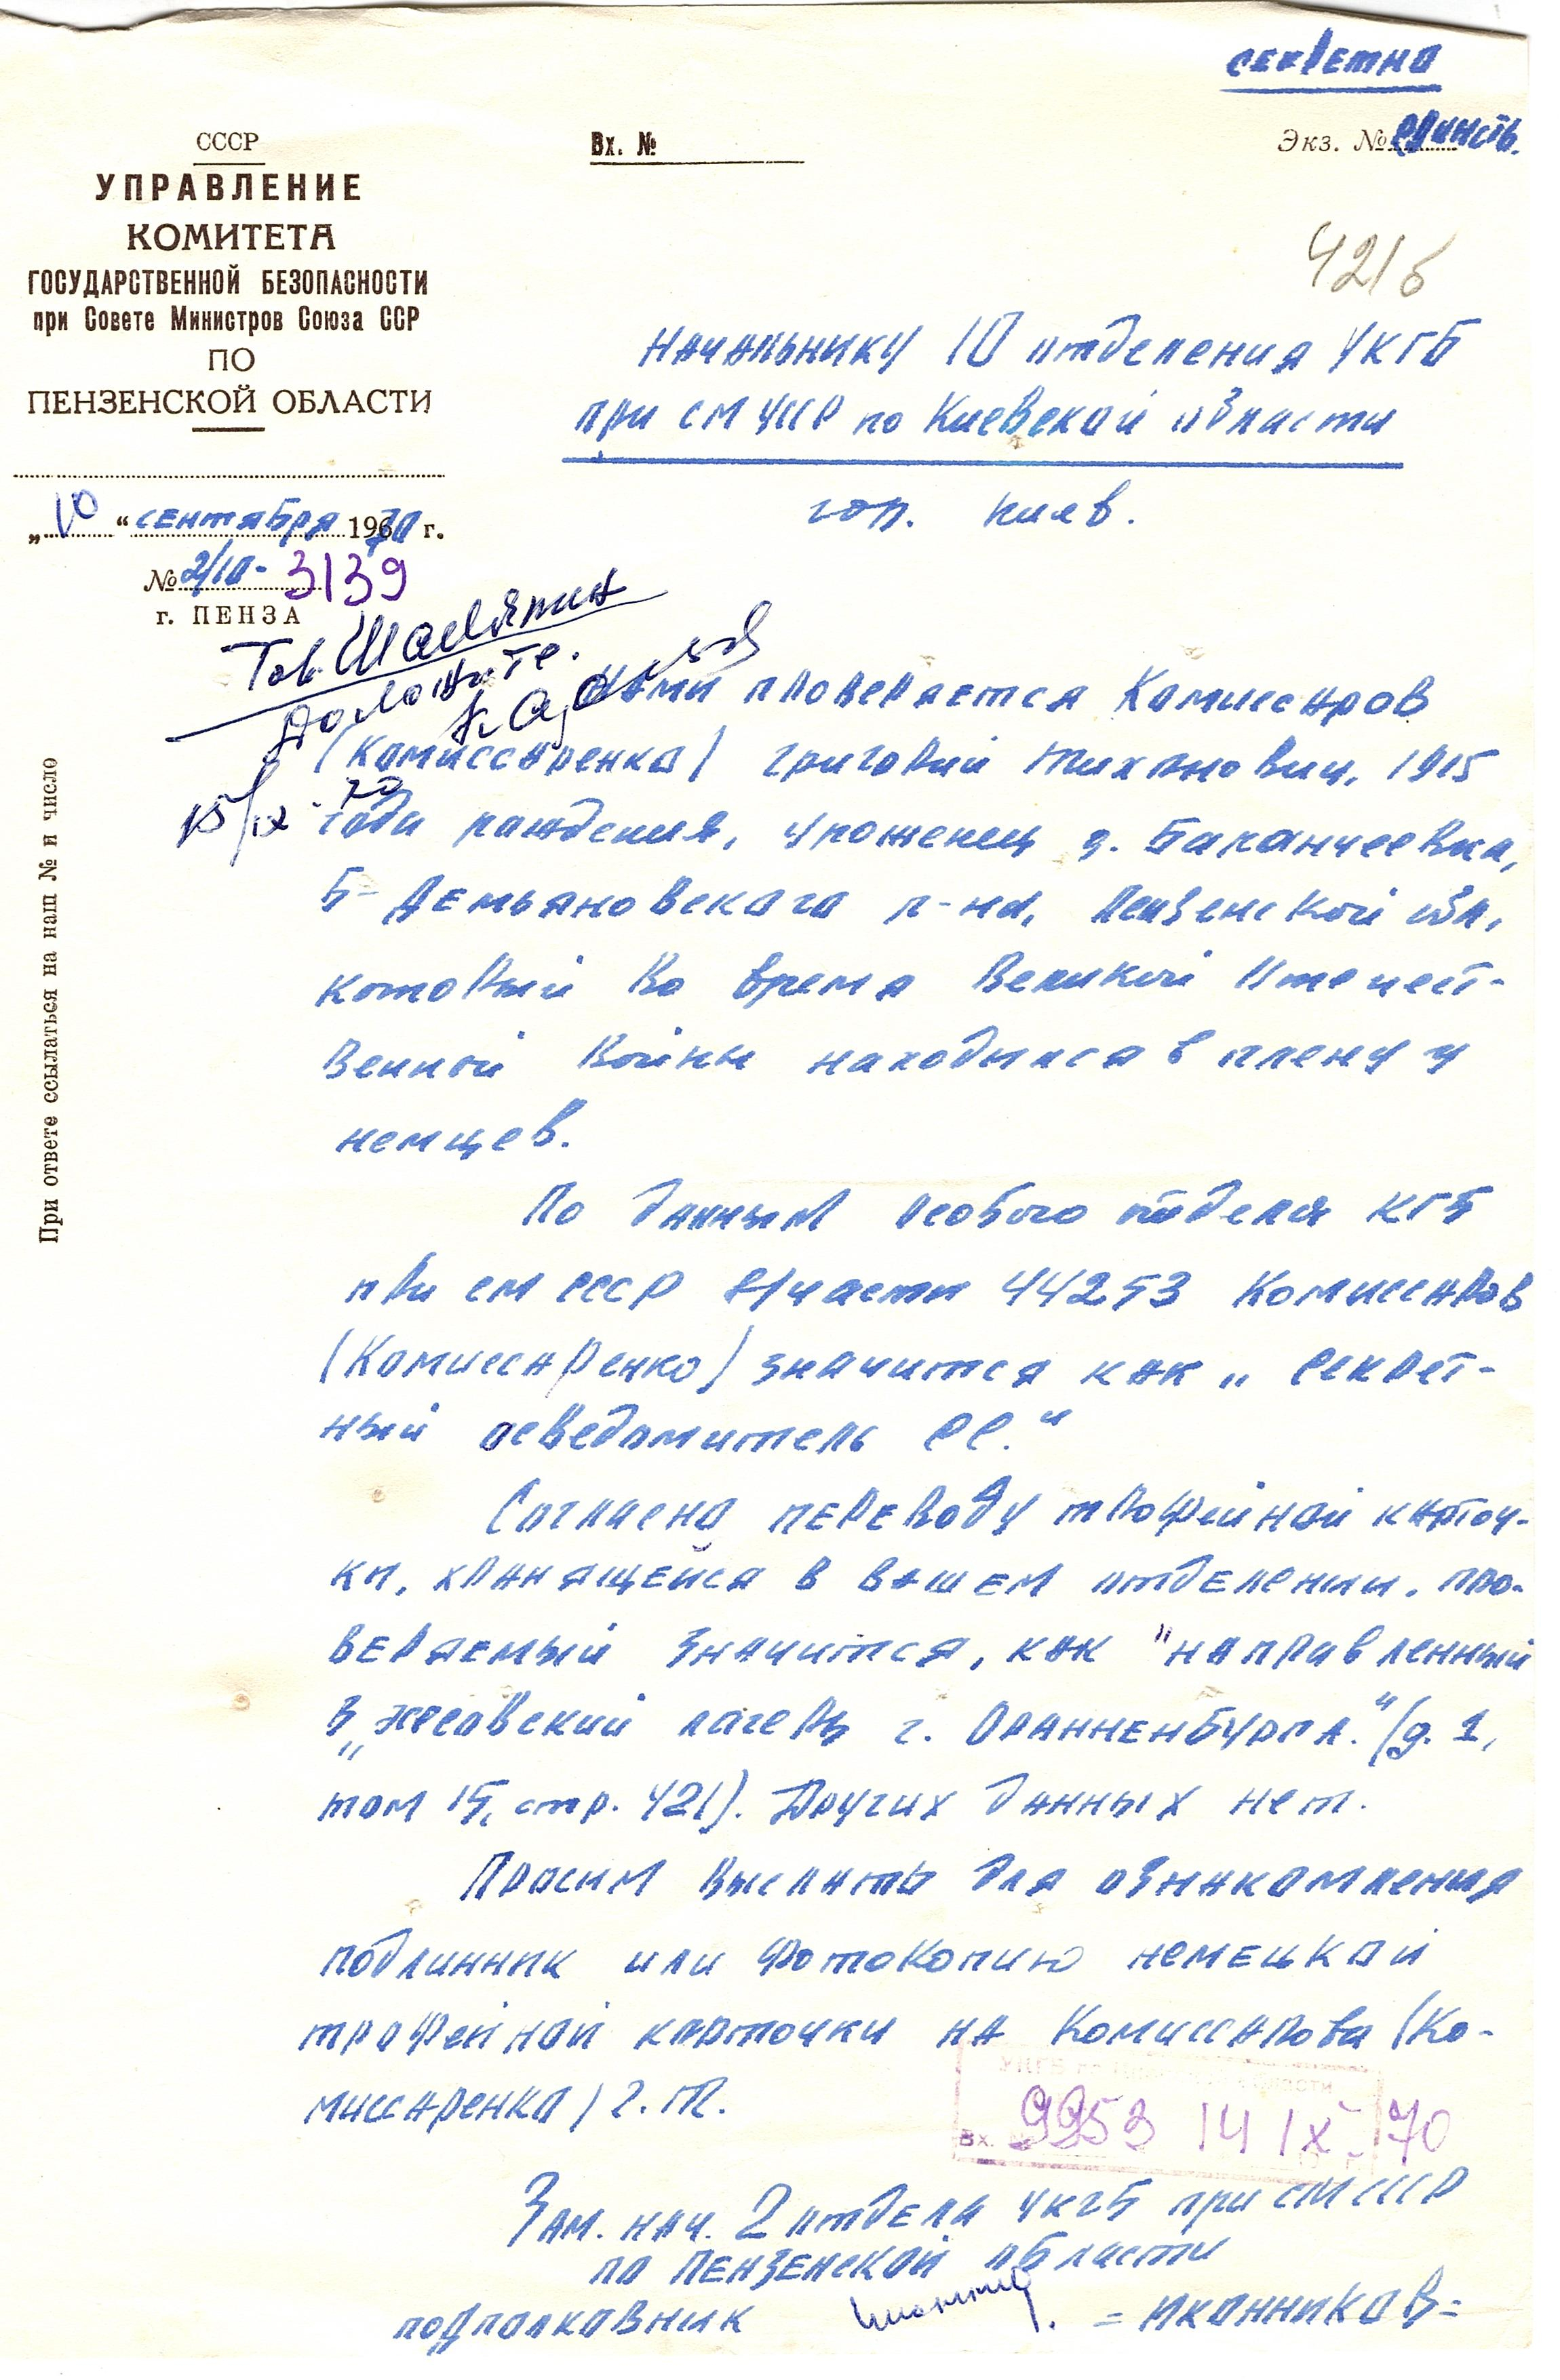 секретно
Экз. № единств.
СССР
УПРАВЛЕНИЕ
КОМИТЕТА
ГОСУДАРСТВЕННОЙ БЕЗОПАСНОСТИ
при Совете Министров Союза ССР
ПО
ПЕНЗЕНСКОЙ ОБЛАСТИ
Вх. №
421б
Начальнику 10 отделения УКГБ
при СМ УССР по Киевской области
гор. Киев.
„10“ сентября 1970 г.
№ 2/10-3139
г. ПЕНЗА
Тов.
Доложите.
15/IX-70
При ответе ссылаться на наш № и число
Нами проверяется Комиссаров
(Комиссаренко) Григорий Тихонович, 1915
года рождения, уроженец д. Баранчеевка,
Б-Демьяновского р-на, Пензенской обл.,
который во время Великой Отечест-
венной войны находился в плену у
немцев.
По данным особого отдела КГБ
при СМ СССР в/части 44253 Комиссаров
(Комиссаренко) значится как „секрет-
ный осведомитель СС."
Согласно переводу трофейной карточ-
ки, хранящейся в вашем отделении, про-
веряемый значится, как "направленный
в „эсесовский лагерь г. Ораниенбурга."(д. 1,
том 15, стр. 421). Других данных нет.
Просим выслать для ознакомления
подлинник или фотокопию немецкой
трофейной карточки на Комиссарова (Ко-
миссаренко) Г.Т.
Вх. 9953 14 IX-70
Зам. нач. 2 отдела УКГБ при СМ СССР
по Пензенской области
подполковник = Иконников =